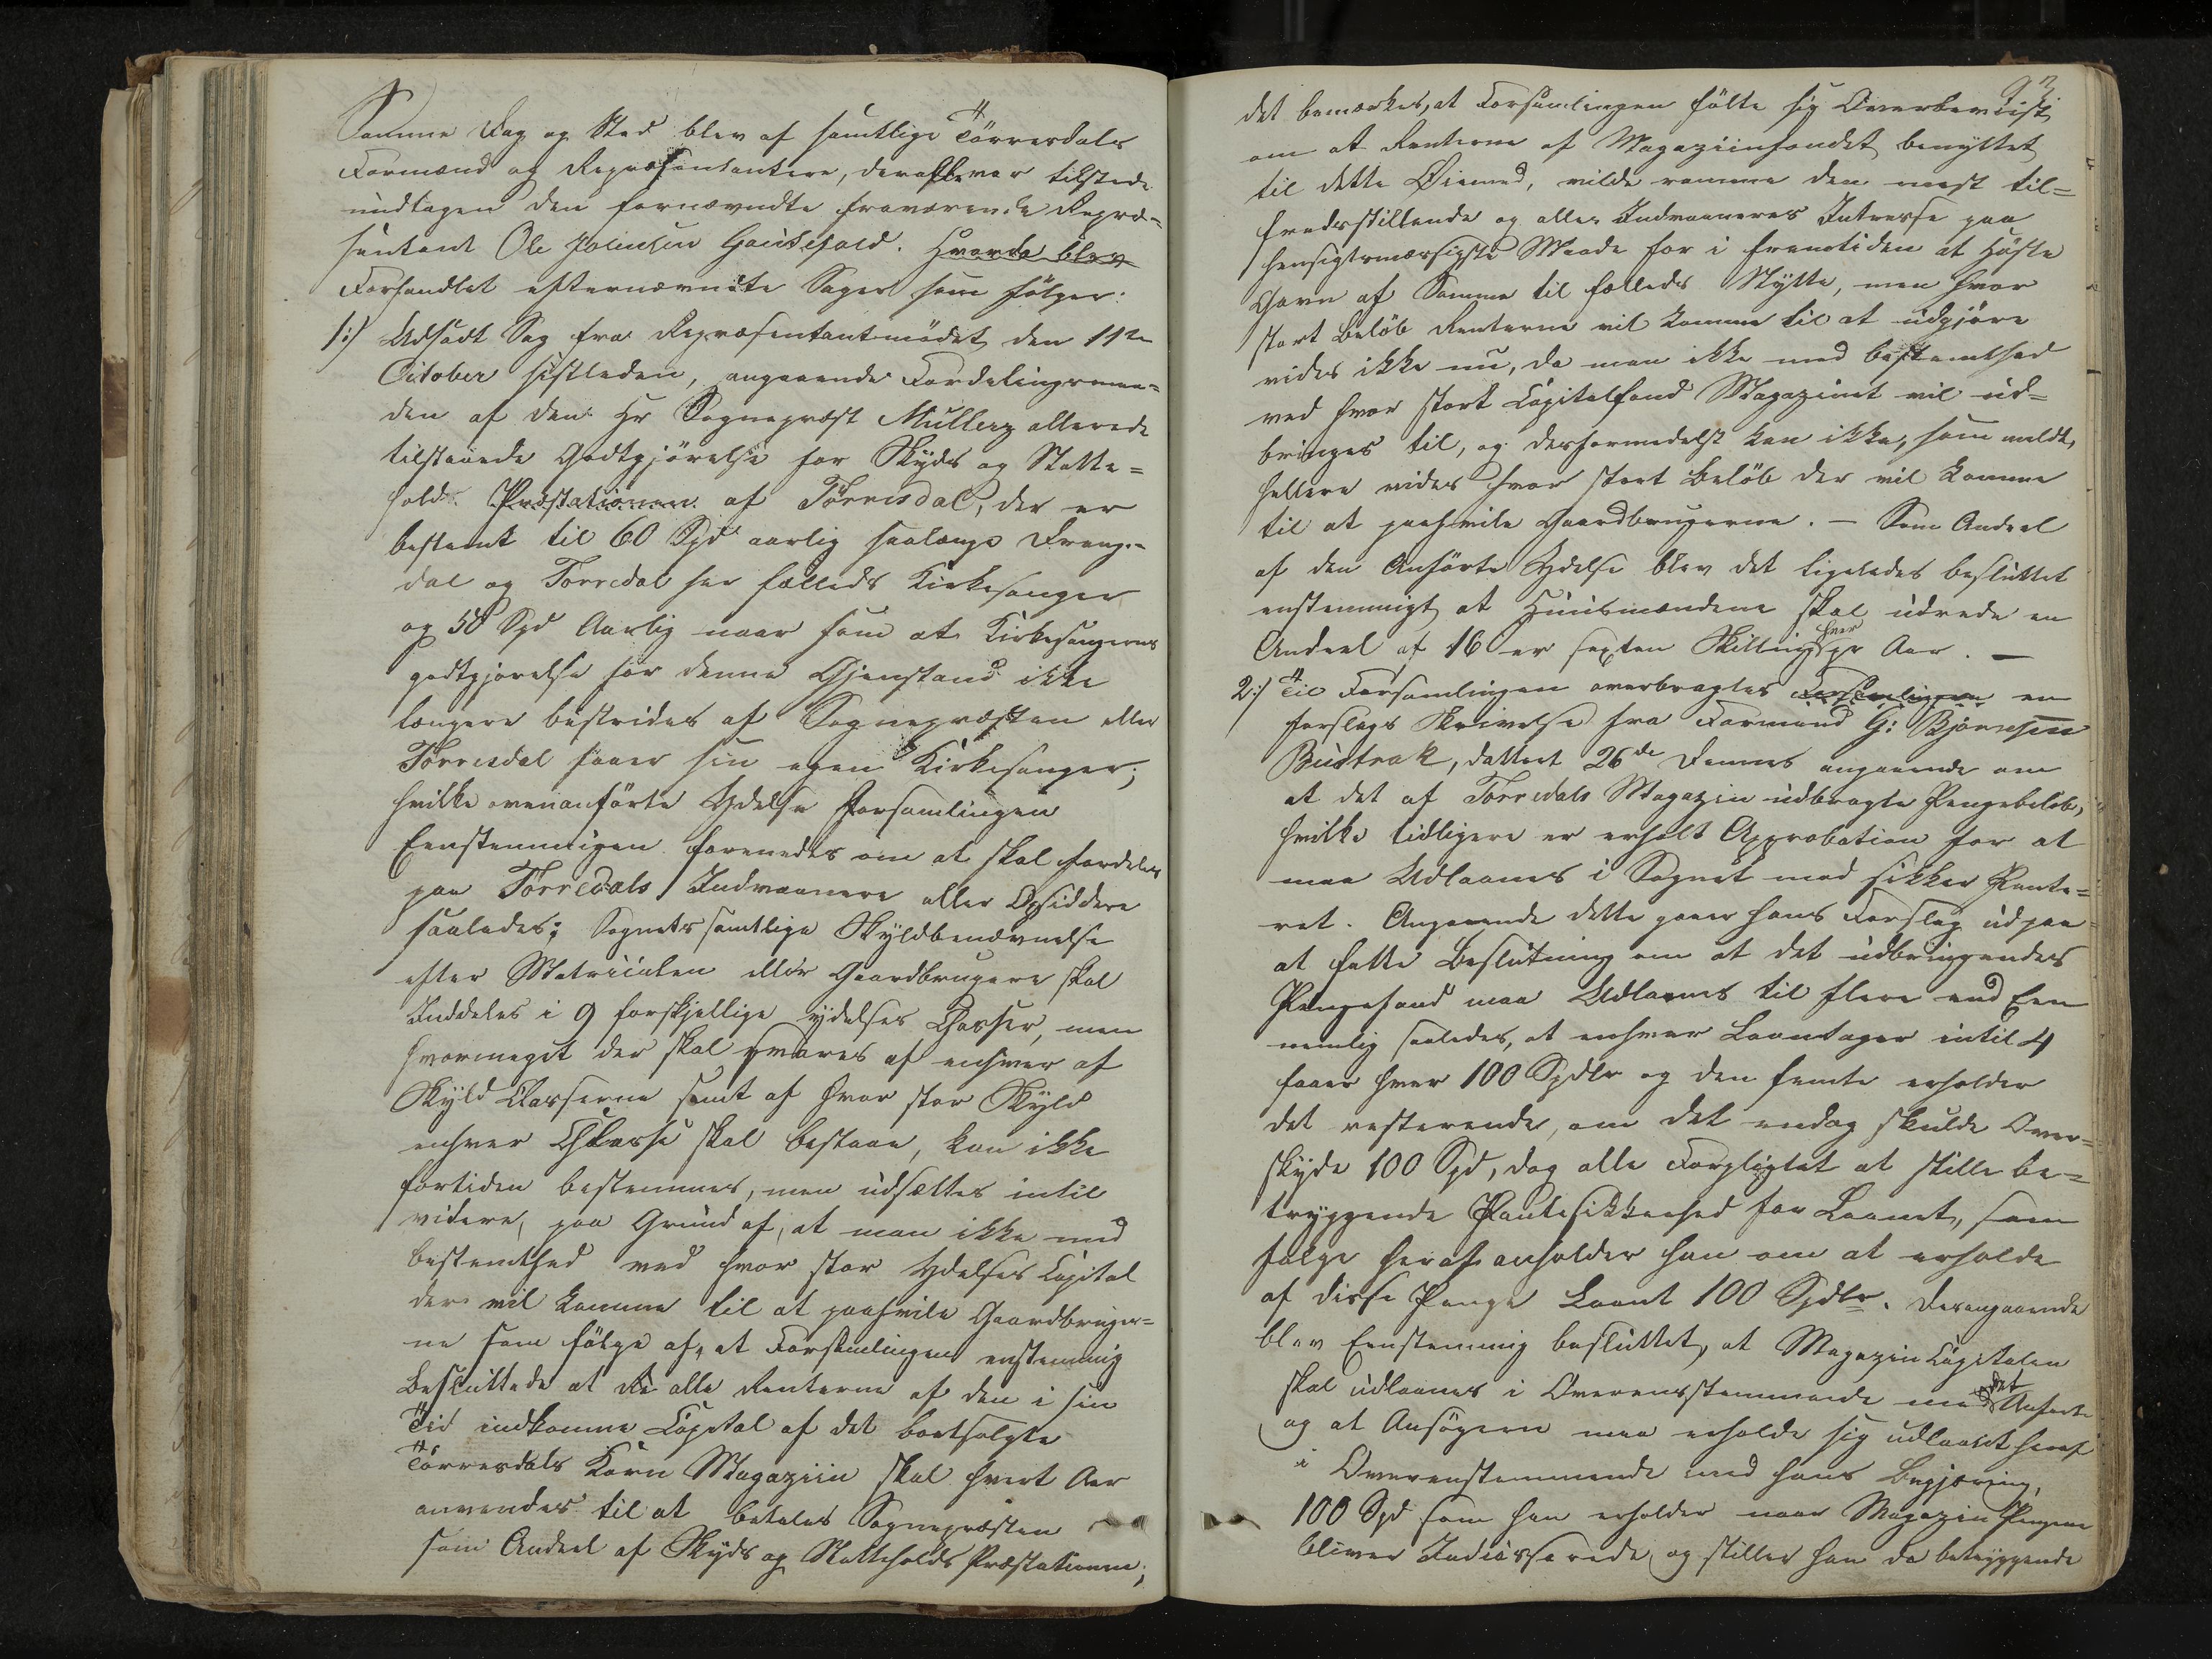 Samme Dag og Sted blev af samtlige Törresdals
Formænd og Repræsentantere, der alle var tilstede
undtagen den fornævndte fraværende Repræ-
sentant Ole Johnsen Gautefald. Hvorda blev
Forhandlet efternævnte Sager som fölger:
1:/ Udsadt Sag fra Repræsentantmödet den 11te
October sistleden, angaaende Fordelingsmaa-
den af den Hr Sognepræst Müllerz allerede
tilstaaede Godtgjörelse for Skyds og Statte-
hold Præstationen af Törrisdal, der er
bestemt til 60 Spd aarlig saalænge Drange-
dal og Torredal har fælleds Kirkesanger
og 50 Spd Aarlig naar som at Kirkesangerens
godtgjörelse for denne Gjenstand ikke
længere bestrides af Sognepræsten eller
Törresdal faaer sin egen Kirkesanger;
hvilke ovenanförte Ydelse Forsamlingen
Eenstemmigen forenedes om at skal fordeles
paa Törredals Indvaanere eller Opsiddere
saaledes; Sognets samtlige Skyldbenævnelse
efter Matriculen eller Gaardbrugere skal
Inddeles i 9 forskjellige ydelses Classer, men
hvormeget der skal svares af enhver af
Skyld Classerne samt af hvor stor Skyld
enhver Classe skal bestaae, kan ikke
fortiden bestemmes, men udsættes intil
videre, paa Grund af, at man ikke med
bestemthed ved hvor stor Ydelses Capital
der vil komme til at paahvile Gaardbruger-
ne som fölge af, at Forsamlingen enstemmig
Besluttede at de alle Renterne af den i sin
Tid indkomne Capital af det bortsolgte
Törresdals Korn Magaziin skal hvert Aar
anvendes til at betales Sognepræsten
som Andeel af Skyds og Statteholds Præstationen;
det bemærkes, at Forsamlingen fölte sig Overbeviist
om at Renterne af Magaziinfondet benyttet
til dette Øiemed, vilde ramme den mest til-
fredsstillende og alle Indvaaneres Intresse paa
hensigtsmæssigste Maade for i fremtiden at Höste
Gavn af Samme til fælleds Nytte, men hvor
stort Belöb Renterne vil komme til at udgjöre
vides ikke nu, da man ikke med bestemthed
ved hvor stort Capitalfond Magazinet vil ud-
bringes til, og desformedelst kan ikke, som meldt,
hellere vides hvor stort Belöb der vil komme
til at paahvile Gaardbrugerne. — Som Andeel
af den Anförte Ydelse blev det ligeledes besluttet
enstemmigt at Huusmændene skal udrede en
Andeel af 16 er sexten Skilling hver pr Aar. —
2:/ Til Forsamlingen overbragtes Forsamlingen en
forslags Skrivelse fra Formand G: Björnsen
Bustrak, datteret 26de Dennes angaaende om
at det af Törredals Magazin udbragte Pengebelöb,
hvilke tidligere er erholdt Approbation for at
maa Udlaanes i Sognet mod sikker Pante-
ret. Angaaende dette gaaer hans Forslag ud paa
at fatte Beslutning om at det udbringendes
Pengefond maa Udlaanes til flere end Een
nemlig saaledes, at enhver Laantager intil 4
faaer hver 100 Spdlr og den femte erholder
det resterende, om det endog skulde Over-
skyde 100 Spd, dog alle Forpligtet at stille be-
tryggende Pantesikkerhed for Laanet, som
fölge heraf anholder han om at erholde
af disse Penge Laant 100 Spdlr. Desangaaende
blev Eenstemmig besluttet, at Magazin Capitalen
skal udlaanes i Overensstemmende med det Anförte
og at Ansögeren maa erholde sig udlaant heraf
i Overensstemmende med hans Begjæring,
100 Spd som han erholder naar Magazin Pengene
bliver Indcasserede, og stiller han da betryggende